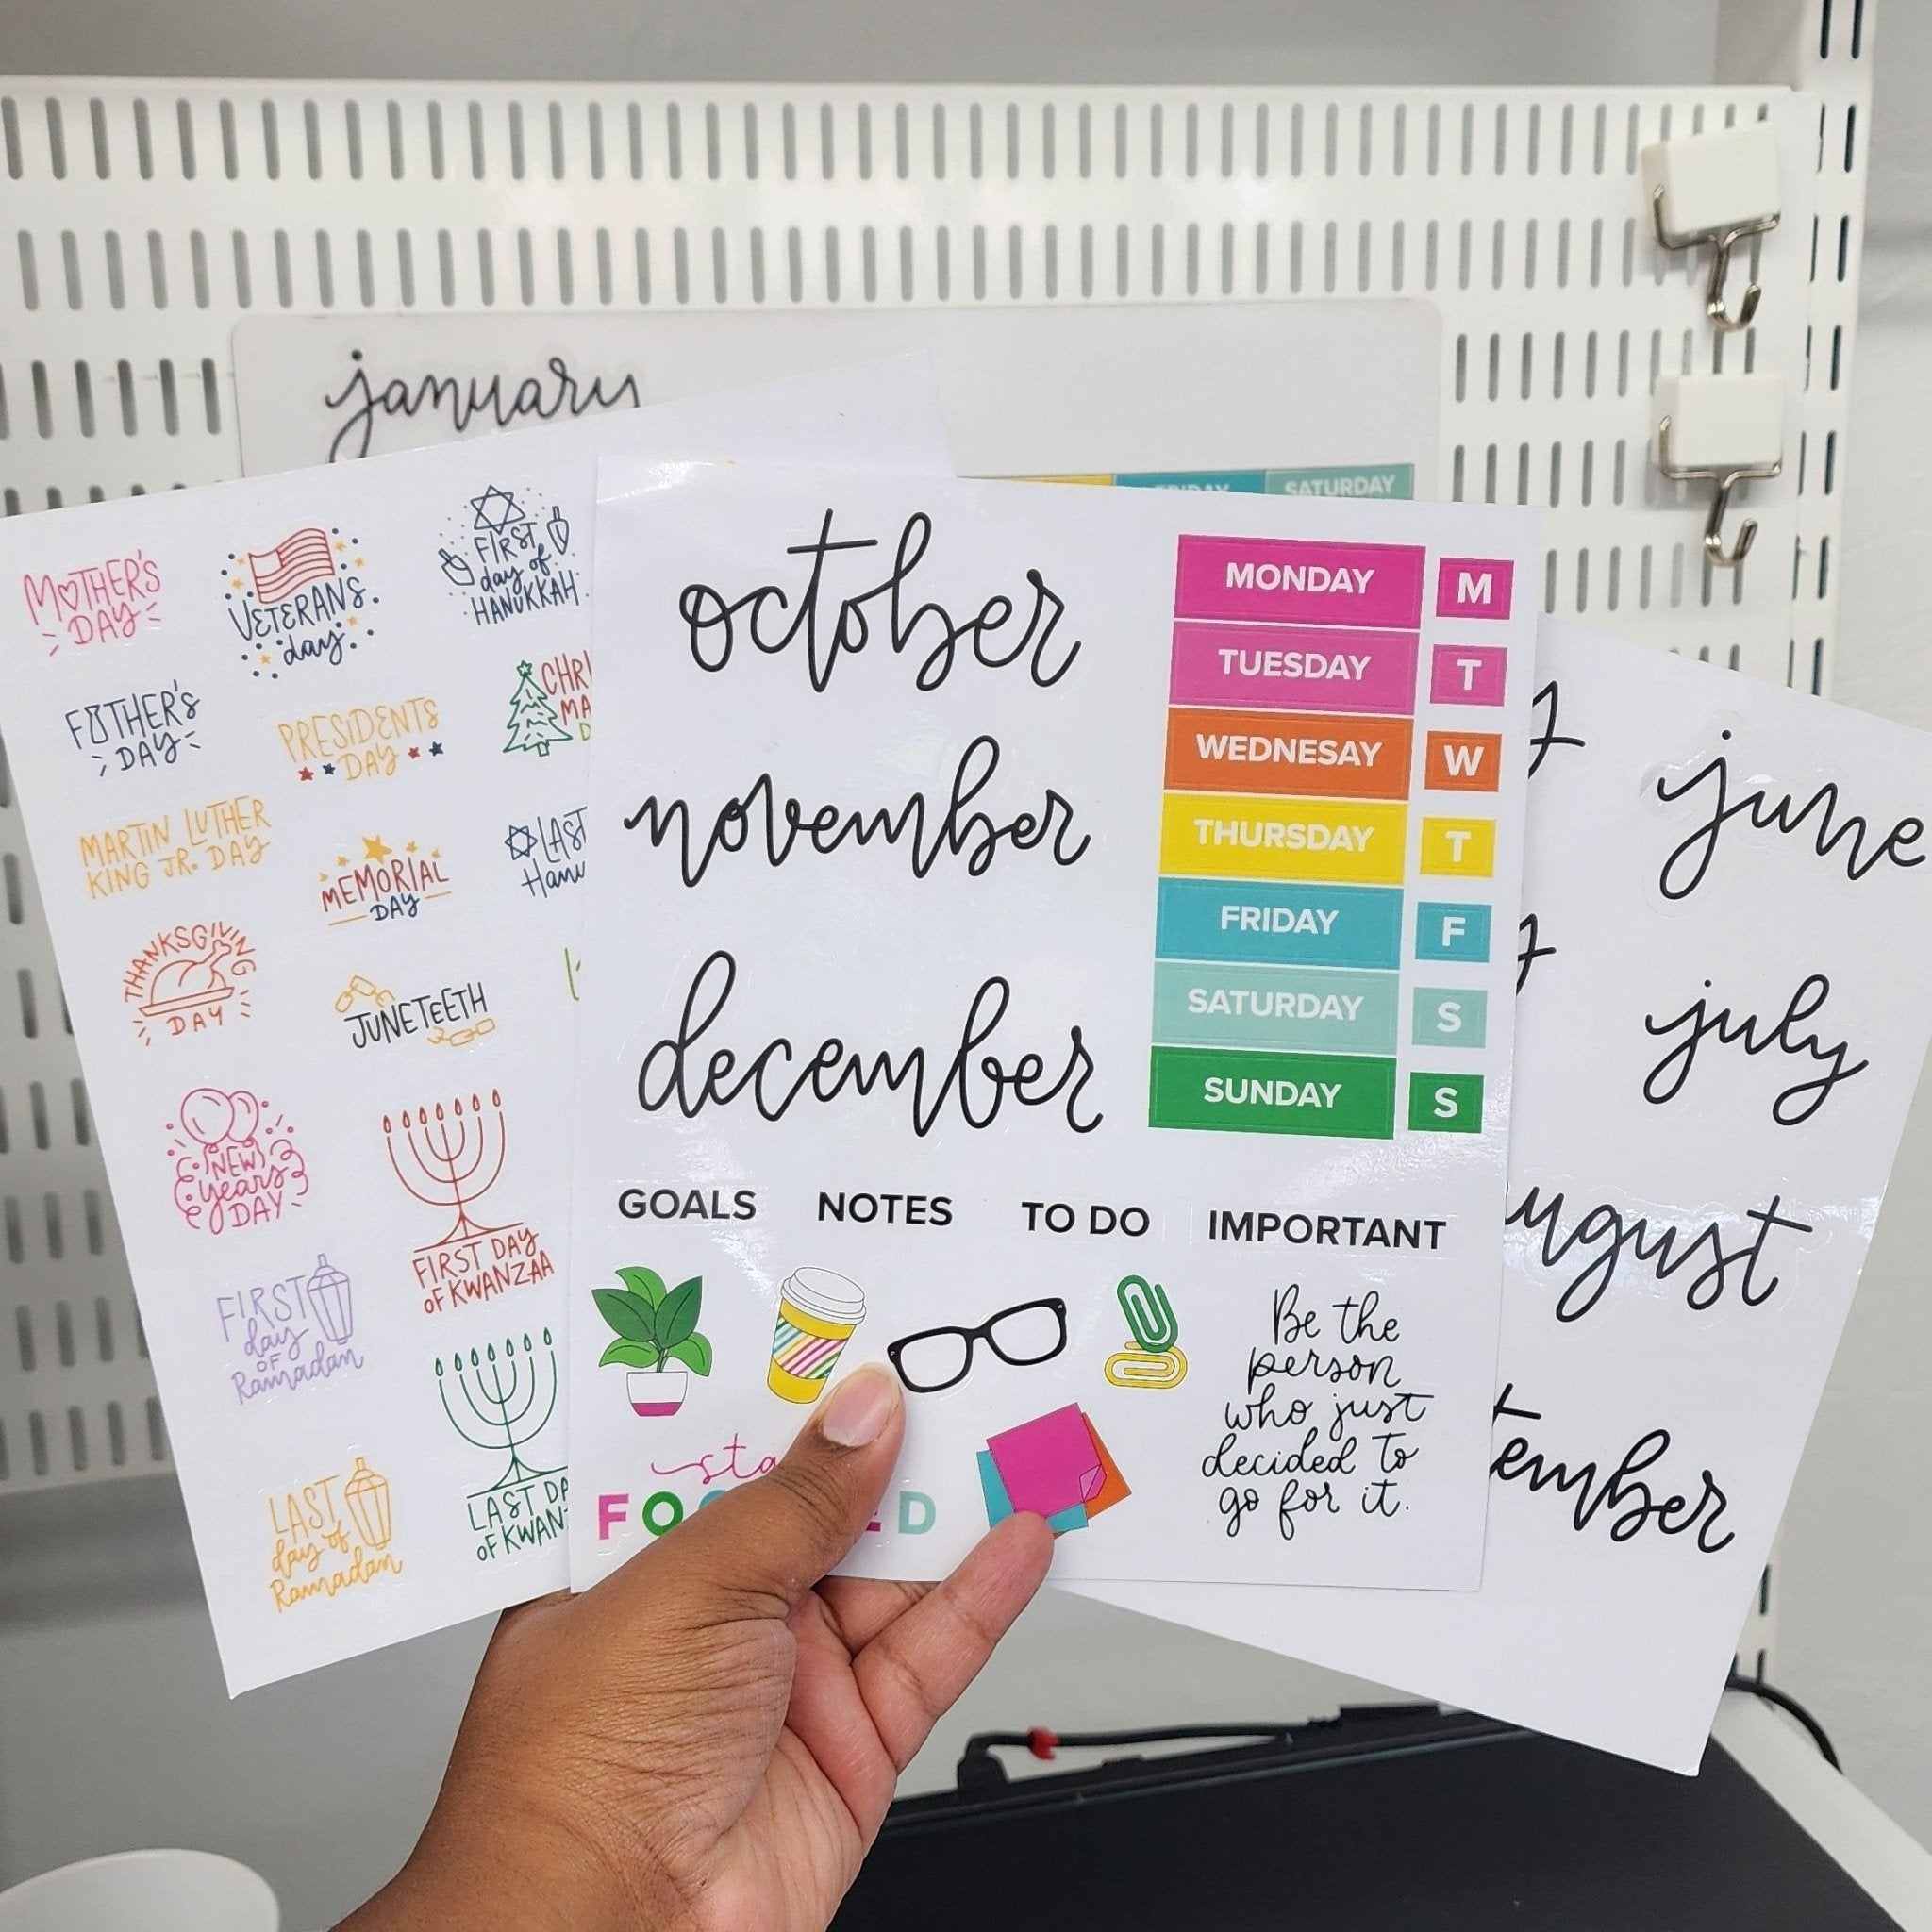 january
FRIDAY
SATURDAY
MOTHER'S
DAY
VETERANS
day
FIRST
day of
HANUKKAH
FATHER'S
DAY
PRESIDENTS
DAY
MARTIN LUTHER
KING JR. DAY
MEMORIAL
DAY
LAST
THANKSGIVING
DAY
JUNETEETH
NEW
years
DAY
FIRST DAY
OF KWANZAA
FIRST
day
OF
Ramadan
LAST
day of
Ramadan
LAST
october
november
december
MONDAY M
TUESDAY T
WEDNESAY W
THURSDAY T
FRIDAY F
SATURDAY S
SUNDAY S
GOALS NOTES TO DO IMPORTANT
Be the
person
who just
decided to
go for it.
june
july